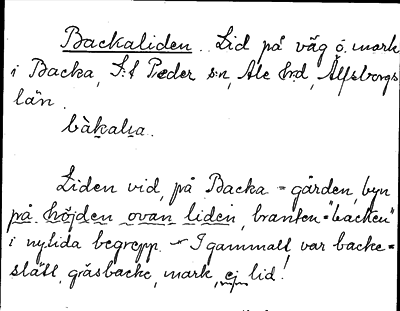 Backaliden. Lid på väg o. mark
i Backa, S:t Peder s:n, Ale hrd, Älfsborgs
län.
bàkalıa.
Liden vid, på Backa=gården, byn
på höjden ovan liden, branten="backen"
i nytida begrepp. - I gammalt, var backe=
slätt, gräsbacke, mark, ej lid!